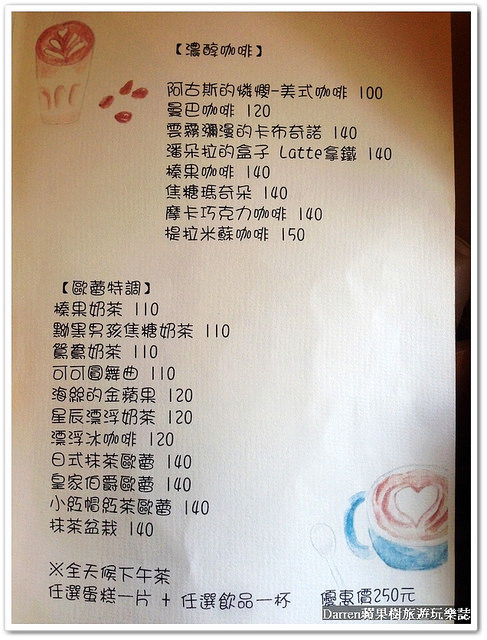 【濃醇咖啡】
阿古斯的憐憫-美式咖啡 100
曼巴咖啡 120
雲霧瀰漫的卡布奇諾 140
潘朵拉的盒子 Latte拿鐵 140
榛果咖啡 140
焦糖瑪奇朵 140
摩卡巧克力咖啡 140
提拉米蘇咖啡 150
【歐蕾特調】
榛果奶茶 110
黝黑男孩焦糖奶茶 110
鴛鴦奶茶 110
可可圓舞曲 110
海絲的金蘋果 120
星辰漂浮奶茶 120
漂浮冰咖啡 120
日式抹茶歐蕾 140
皇家伯爵歐蕾 140
小紅帽紅茶歐蕾 140
抹茶盆栽 140
※全天候下午茶
任選蛋糕一片 + 任選飲品一杯 優惠價250元
Darren蘋果樹旅遊玩樂誌